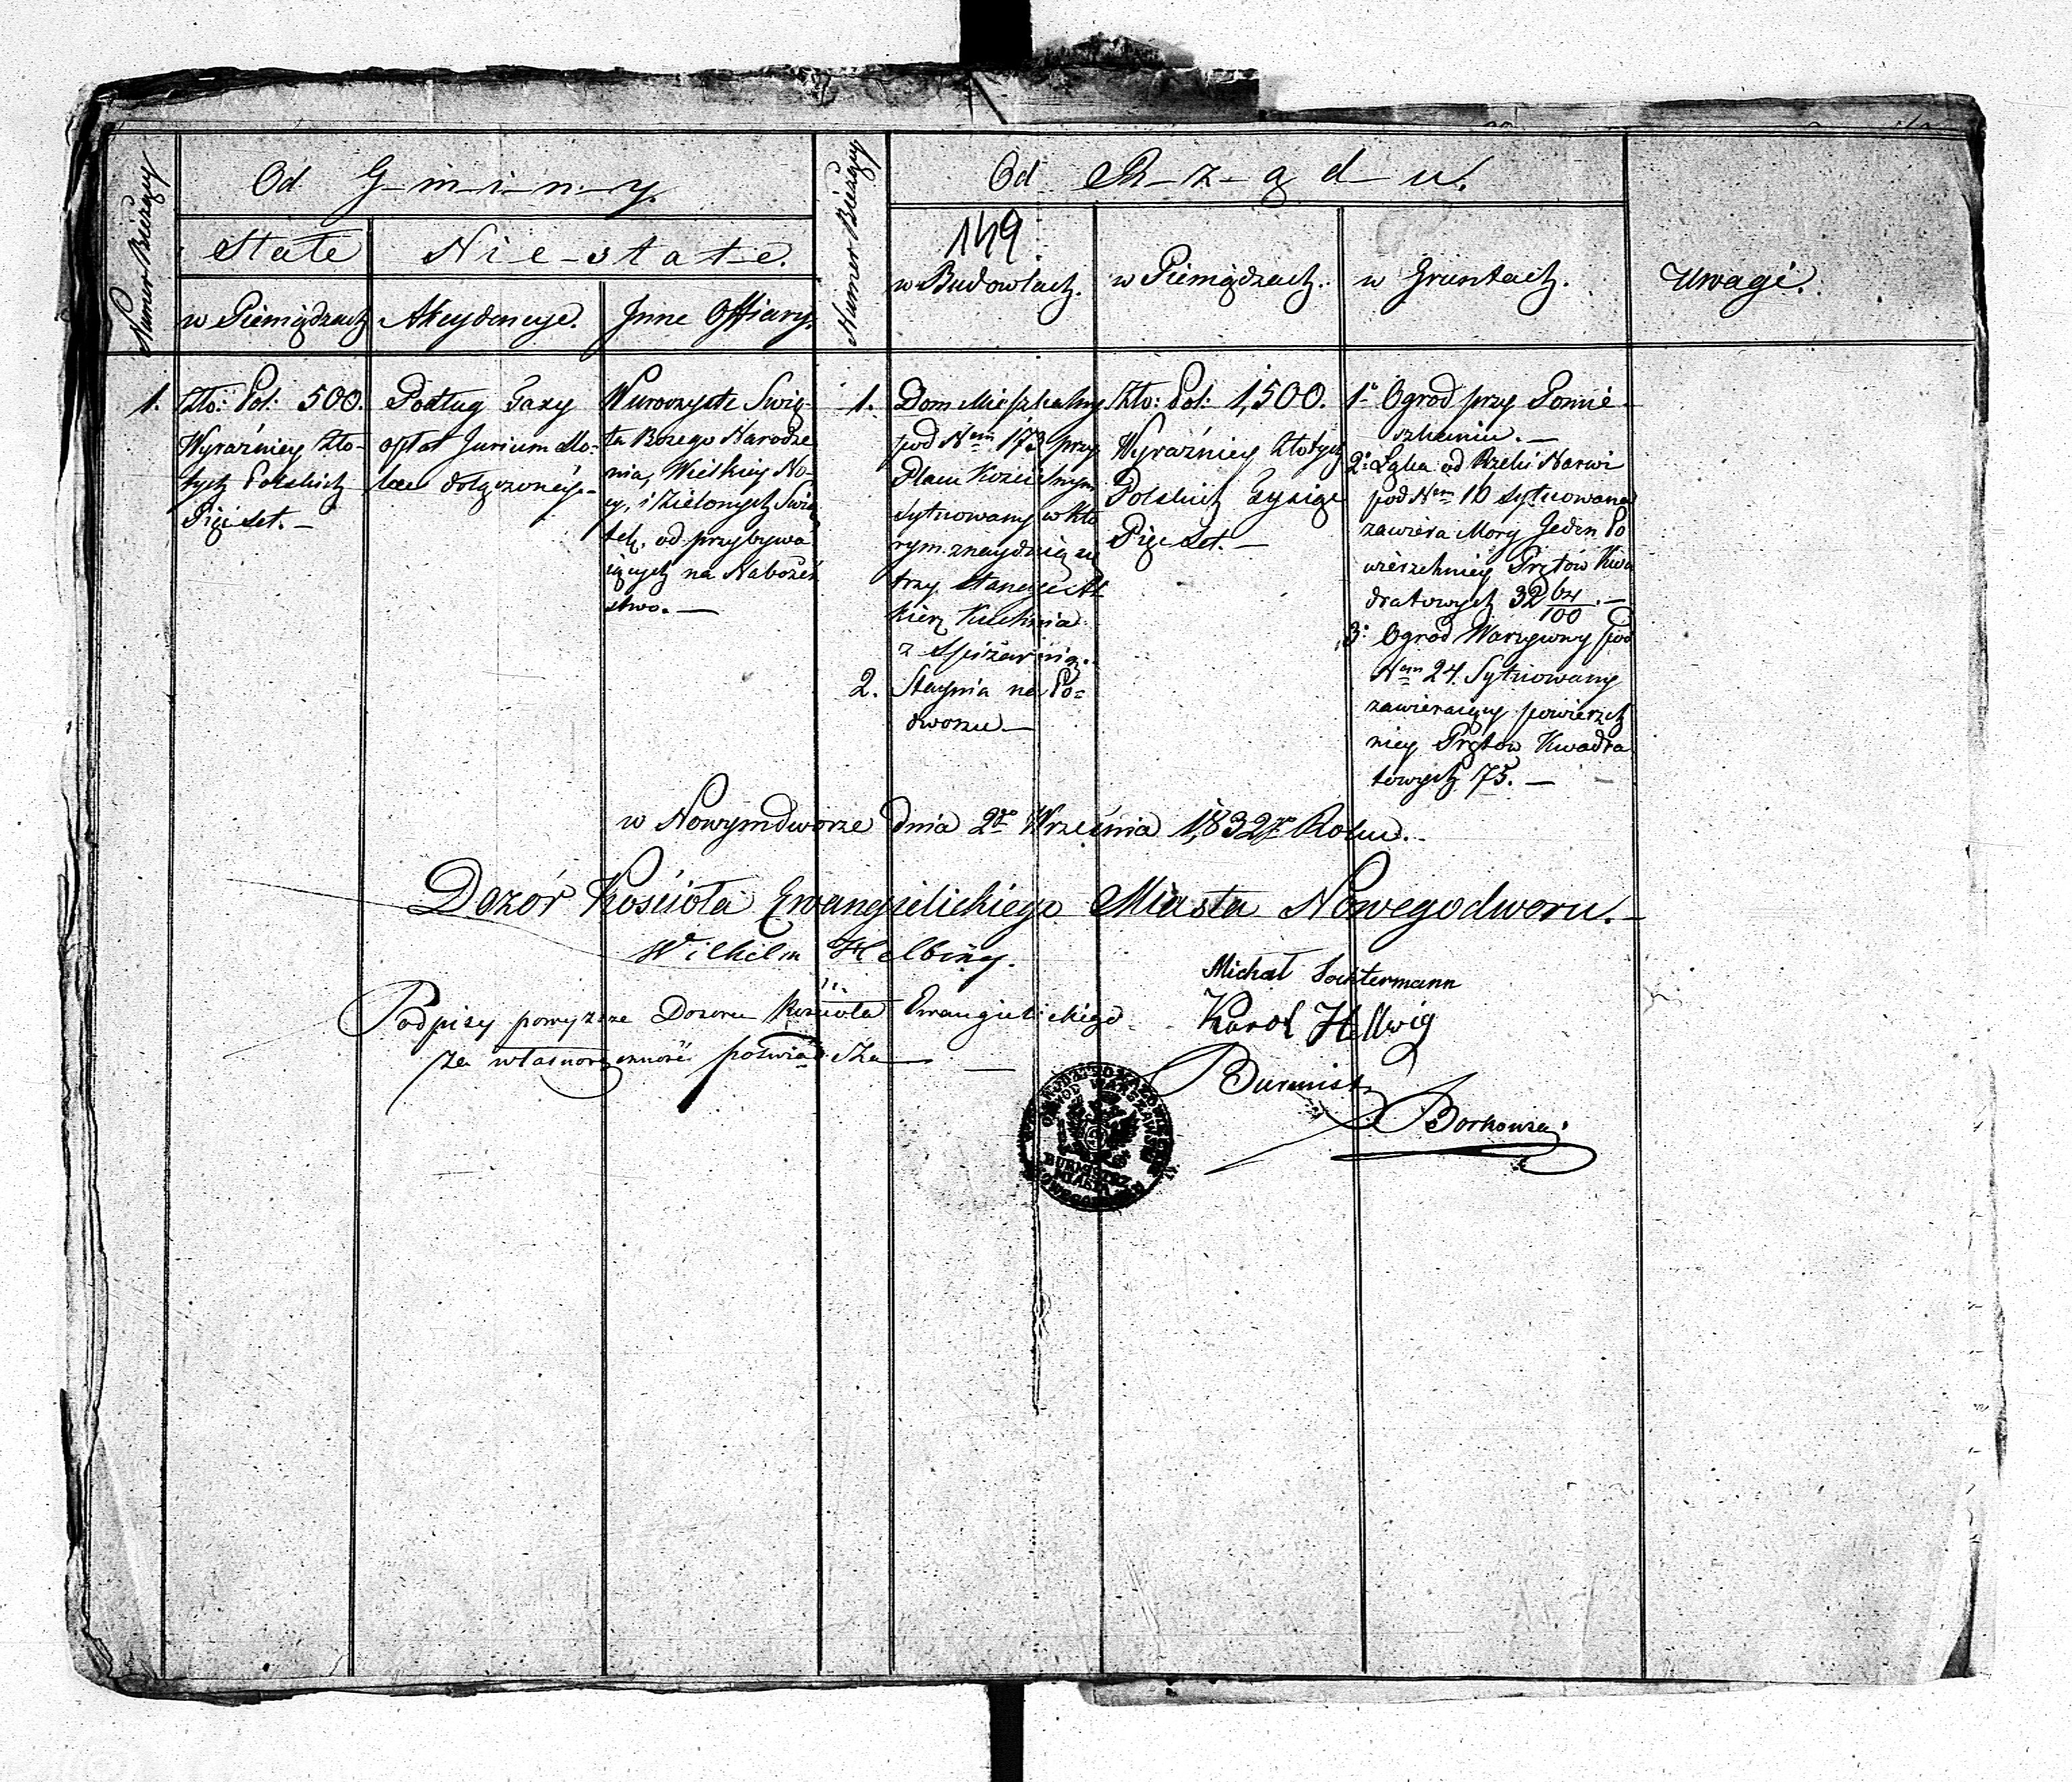 Numer Bieżący
Od G-m-i-n-y.
Stałe
Nie-stałe.
w Pieniądzach
Akcydencye.
Jnne Offiary.
Numer Bieżący
Od R-z-ą-d-u.
149
w Budowlach.
w Pieniądzach.
w Gruntach.
Uwagi.
1.
Zło: Pol: 500.
Wyraźniey Zło-
tych Polskich
Pięć set. —
Podług Taxy
opłat Jurium Sto-
lae dołączoney.-
W uroczyste Swię-
ta Bożego Narodze
nia, Wielkiey No-
cy, i Zielonych Swią
tek, od przybywa
iących na Nabożeń
stwo. —
1.
Dom Mieszkalny
pod Nem 173 przy
Placu Kościelnym
Sytuowany w któ
rym znayduią się
trzy Stancye Al-
kierz Kuchnia
z Spiżarnią.
2. Staynia na Po=
dworzu —
Zło: Pol: 1,500.
Wyraźniey Złotych
Polskich Tysiąc
Pięć set. —
1o Ogrod przy Pomie-
szkaniu. —
2o Łąka od Rzeki Narwi
pod Nem 10 Sytuowana
zawiera Morg Jeden Po
wierzchniey Prętów Kwa
dratowych 32 64/100. —
3o Ogrod Warzywny pod
Nem 24. Sytuowany
zawieraiący powierzch
niey Prętow Kwadra
towych 75. —
w Nowymdworze dnia 2go Września 1,832go Roku.
Dozór Kościoła Ewangielickiego Miasta Nowegodworu. —
Wilhelm Helbing.
Michał Sochtermann
Karol Hellwig
Podpisy powyższe Dozoru Kościoła Ewangielickiego
za własnoręczność poświadcza —
Burmistrz
Borkowski
BURMISTRZ
MIASTA